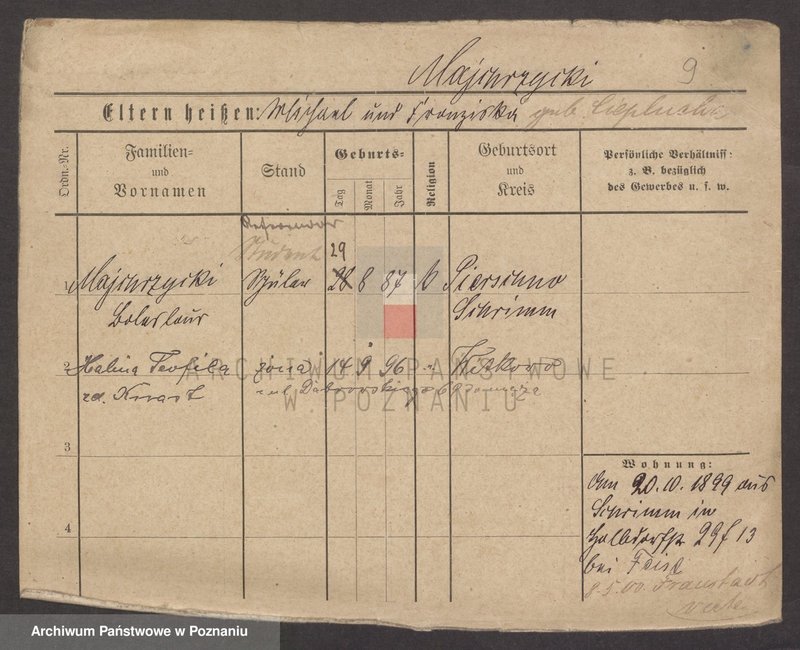 Majchrzycki 9
Eltern heißen: Michael und Franziska geb.
Ordn.-Nr.
Familien-
und
Vornamen
Stand
Geburts-
Tag
Monat
Jahr
Religion
Geburtsort
und
Kreis
Persönliche Verhältniss:
z. B. bezüglich
des Gewerbes u. s. w.
Referendar
Student
29
1 Majchrzycki Schüler 28 8 87 k Pierschno
Boleslaus Schrimm
2 Halina Teofila żona 14 9 96 " Witkowo
zd. Kwast ul. Dąbrowskiego
3
Wohnung:
Am 20.10.1899 aus
Schrimm in
Halbdorfstr 29 f 13
4
bei Feist
8.5.00. Fraustadt
ARCHIWUM PAŃSTWOWE
W POZNANIU
Archiwum Państwowe w Poznaniu